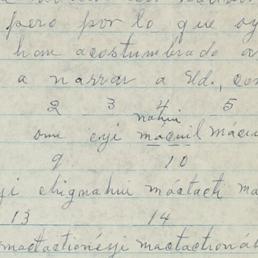 pero por lo que oy
han acostumbrado a
a narrar a Ud., con
2 3 4 5
nahui
ome eyi macuil
9 10
chignahui máctactl ma
13 14
mactactionéyi mactactioná